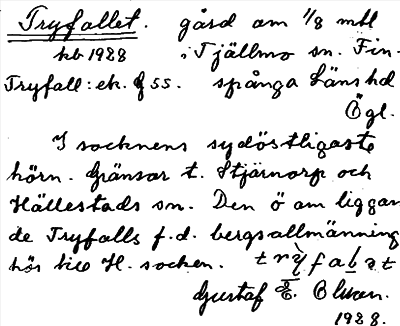 Tryfallet. gård om 1/8 mtl
kb 1928 i Tjällmo sn. Fin-
Tryfall: ek. 55. spånga länshd
Ögl.
I socknens sydöstligaste
hörn. Gränsar t. Stjärnorp och
Hällestads sn. Den ö om liggan
de Tryfalls f.d. bergsallmänning
hör till H. socken.
Gustaf E. Olsson.
1928.